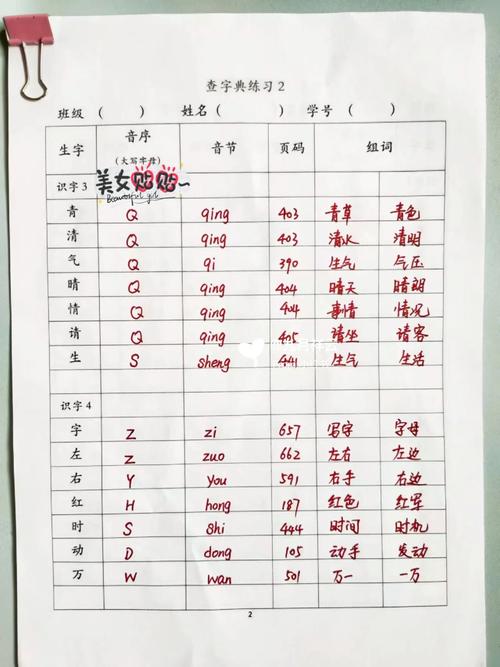 查字典练习2
班级（ ） 姓名（ ） 学号（ ）
生字 音序（大写字母） 音节 页码 组词
识字3 美女贴贴~ Beautiful girl
青 Q qing 403 青草 青色
清 Q qing 403 清水 清明
气 Q qi 390 生气 气压
晴 Q qing 404 晴天 晴朗
情 Q qing 404 事情 情况
请 Q qing 405 请坐 请客
生 S sheng 441 生气 生活
识字4
字 Z zi 657 写字 字母
左 Z zuo 662 左右 左边
右 Y you 591 右手 右边
红 H hong 187 红色 红军
时 S shi 444 时间 时机
动 D dong 105 动手 发动
万 W wan 501 万一 一万
2